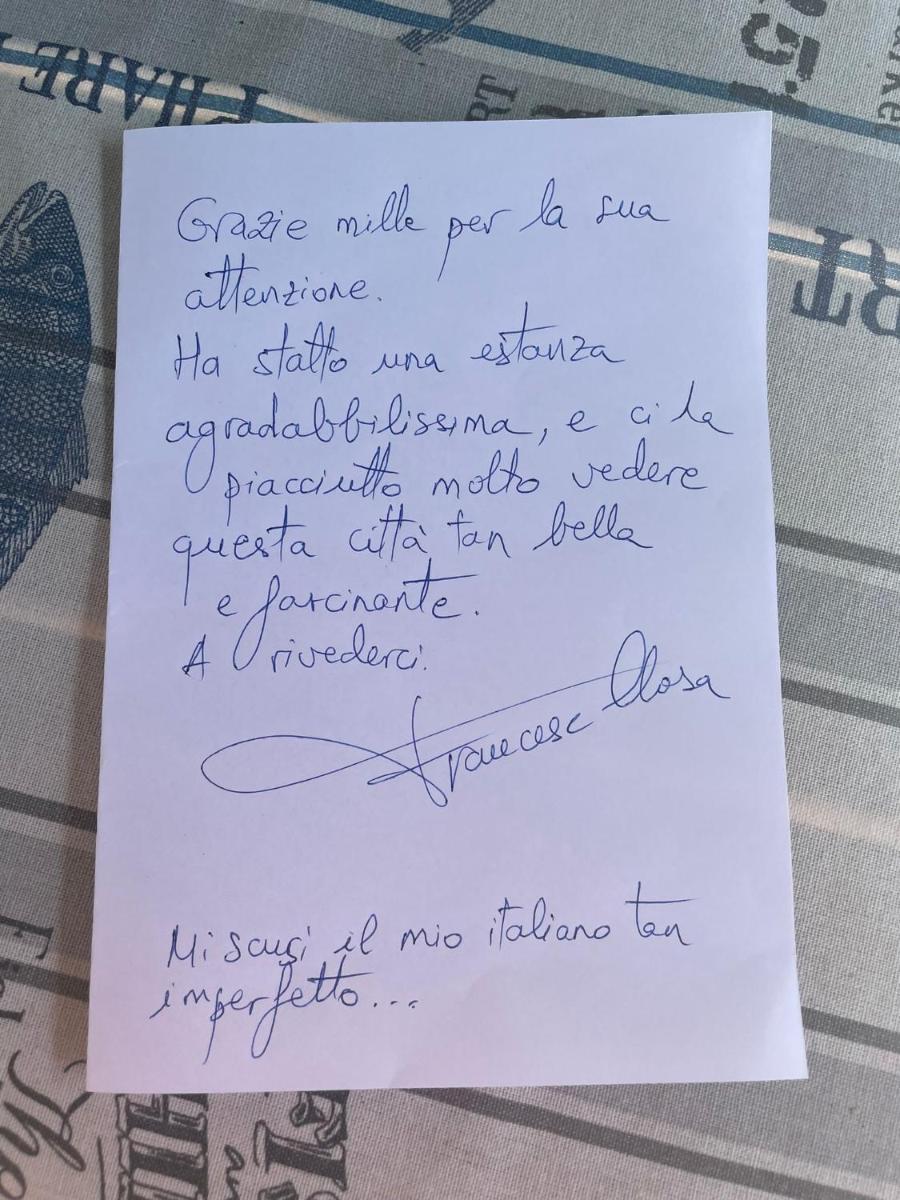 PHARE
RT
Grazie mille per la sua
attenzione.
Ha statto una estanza
agradabbilissima, e ci la
piacciutto molto vedere
questa città tan bella
e fascinante.
A rivederci.
Francesc Llosa
Mi scusi il mio italiano tan
imperfetto...